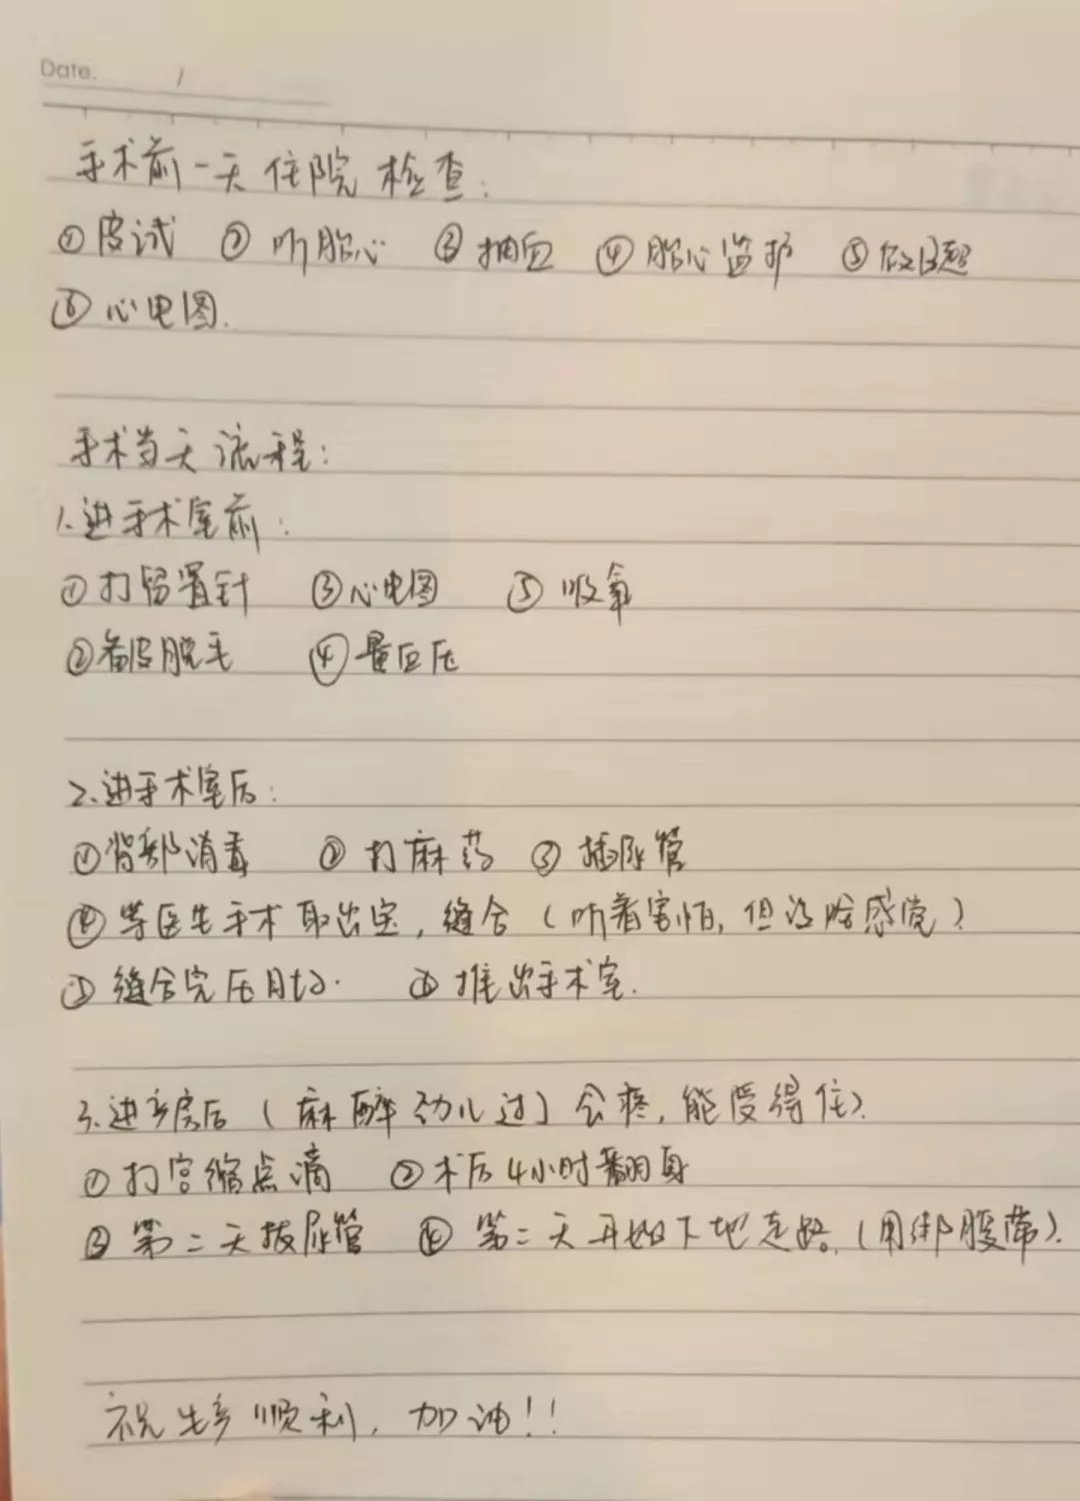 Date. /
手术前一天住院检查:
①皮试 ②听胎心 ③抽血 ④胎心监护 ⑤做B超
⑥心电图.
手术当天流程:
1.进手术室前:
①打留置针 ③心电图 ⑤吸氧
②备皮脱毛 ④量血压
2.进手术室后:
①背部消毒 ②打麻药 ③插尿管
④等医生手术取出宝,缝合(听着害怕,但没啥感觉)
⑤缝合完压肚子. ⑥推出手术室.
3.进产房后(麻醉劲儿过)会疼,能受得住).
①打宫缩点滴 ②术后4小时翻身
③第二天拔尿管 ④第二天开始下地走路.(用绑腹带).
祝生产顺利,加油!!